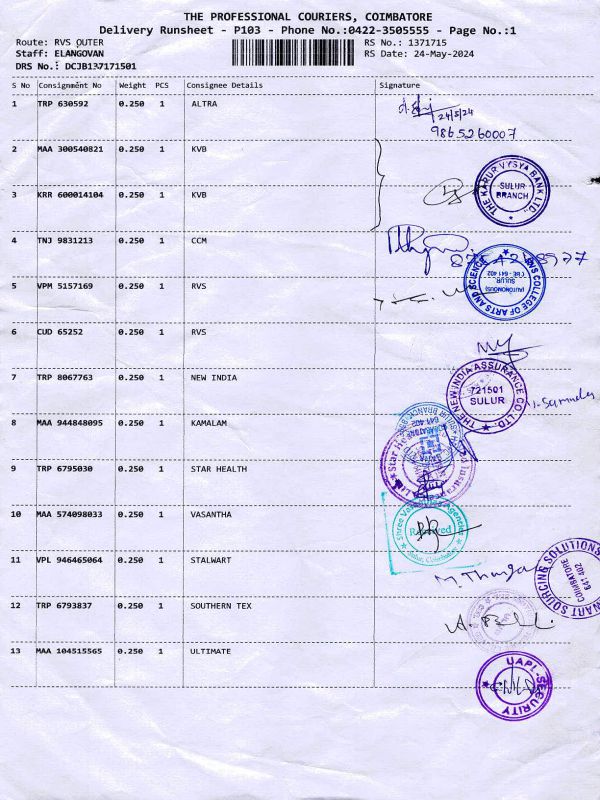 THE PROFESSIONAL COURIERS, COIMBATORE
Delivery Runsheet - P103 - Phone No.:0422-3505555 - Page No.:1
Route: RVS OUTER RS No.: 1371715
Staff: ELANGOVAN RS Date: 24-May-2024
DRS No.: DCJB137171501
S No Consignment No Weight PCS Consignee Details Signature
1 TRP 630592 0.250 1 ALTRA
24/5/24
9865260007
2 MAA 300540821 0.250 1 KVB
THE KARUR VYSYA BANK LTD.
SULUR
BRANCH
3 KRR 600014104 0.250 1 KVB
4 TNJ 9831213 0.250 1 CCM
5 VPM 5157169 0.250 1 RVS
RVS COLLEGE OF ARTS AND SCIENCE
(AUTONOMOUS)
SULUR,
CBE - 641 402
6 CUD 65252 0.250 1 RVS
7 TRP 8067763 0.250 1 NEW INDIA
THE NEW INDIA ASSURANCE CO. LTD.
721501
SULUR
8 MAA 944848095 0.250 1 KAMALAM
SULUR BRANCH
641 402
9 TRP 6795030 0.250 1 STAR HEALTH
Star Health
10 MAA 574098033 0.250 1 VASANTHA
Received
Sulur, Coimbatore
11 VPL 946465064 0.250 1 STALWART
SOURCING SOLUTIONS
COIMBATORE
641 402
12 TRP 6793837 0.250 1 SOUTHERN TEX
13 MAA 104515565 0.250 1 ULTIMATE
UAPL-SECURITY